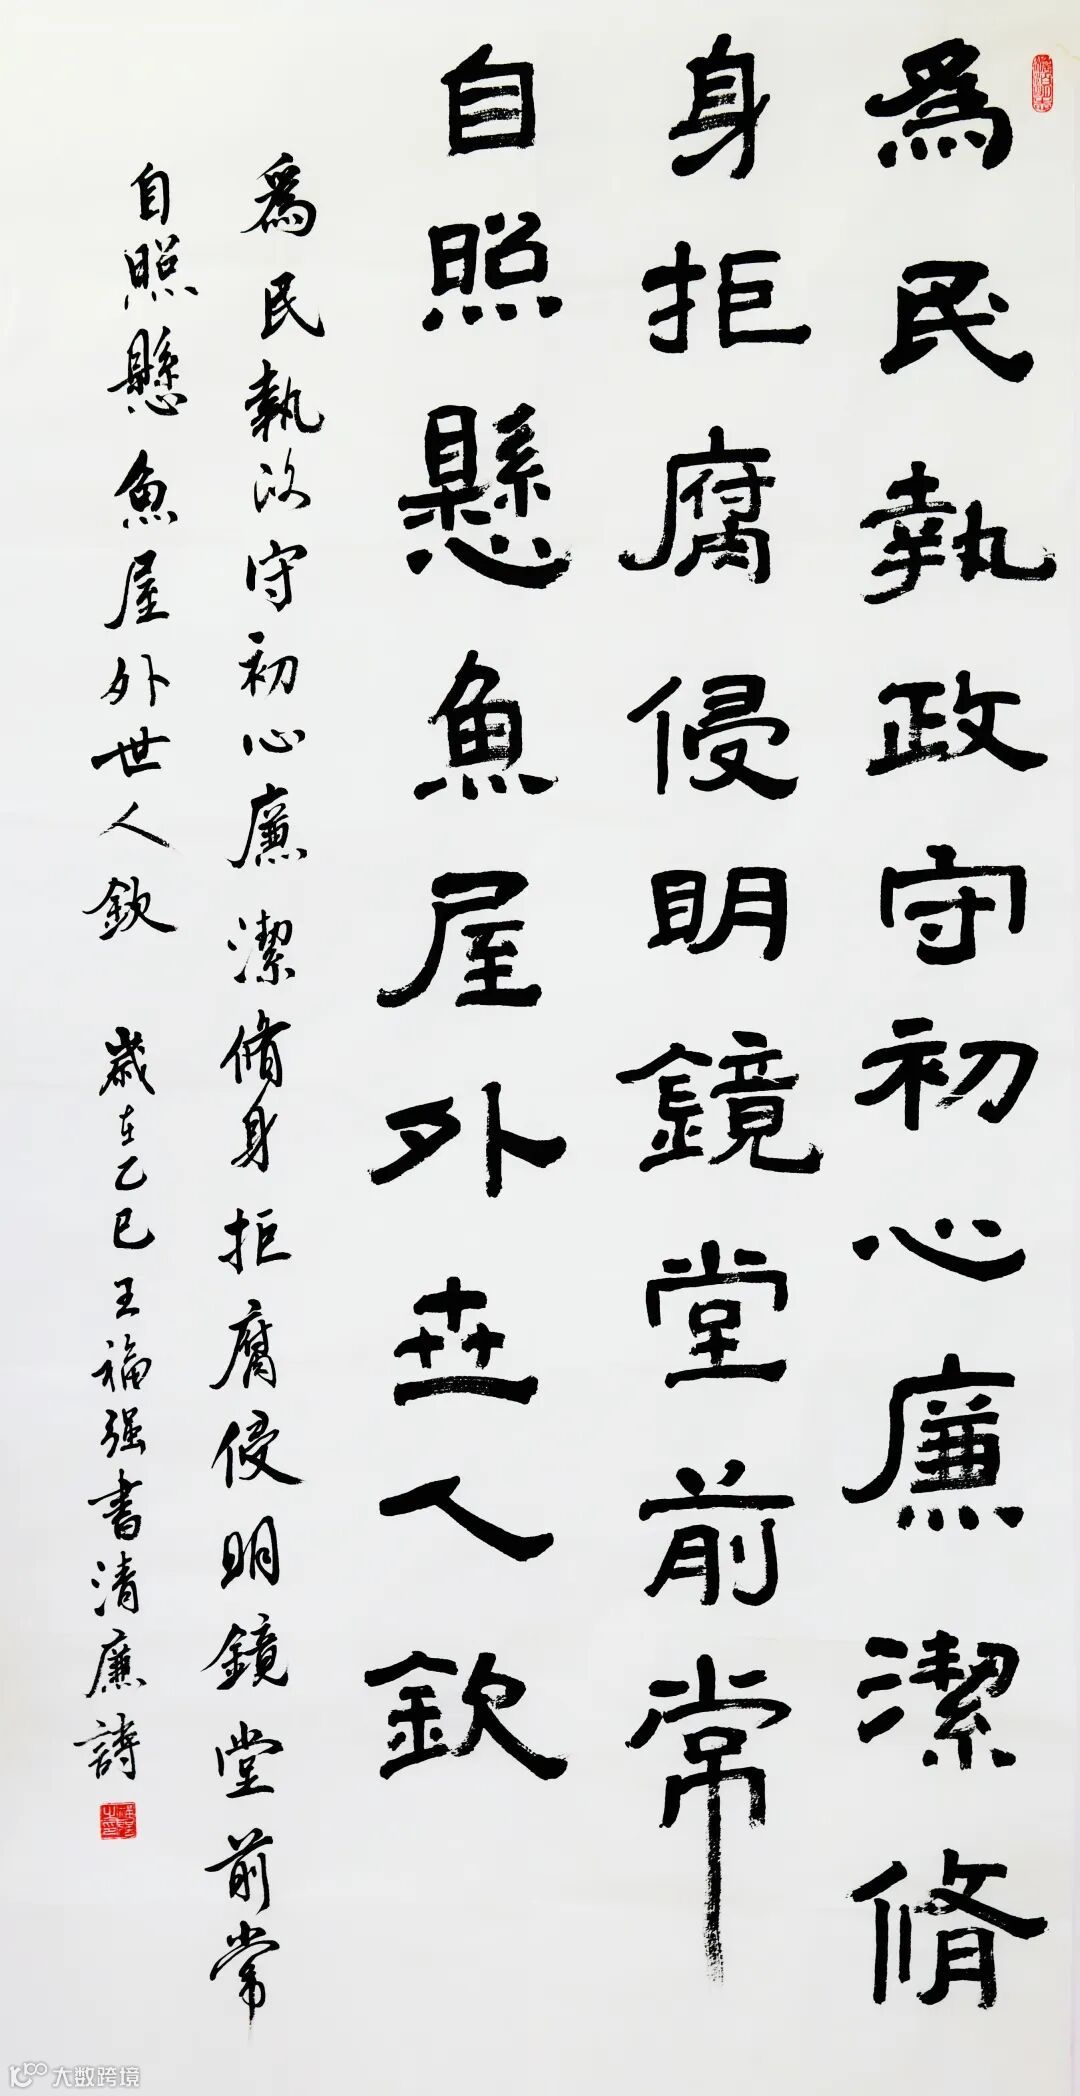 為民執政守初心廉潔脩
身拒腐侵明鏡堂前常
自照懸魚屋外世人欽
為民執政守初心廉潔脩身拒腐侵明鏡堂前常
自照懸魚屋外世人欽 歲在乙巳王福强書清廉詩
大数跨境